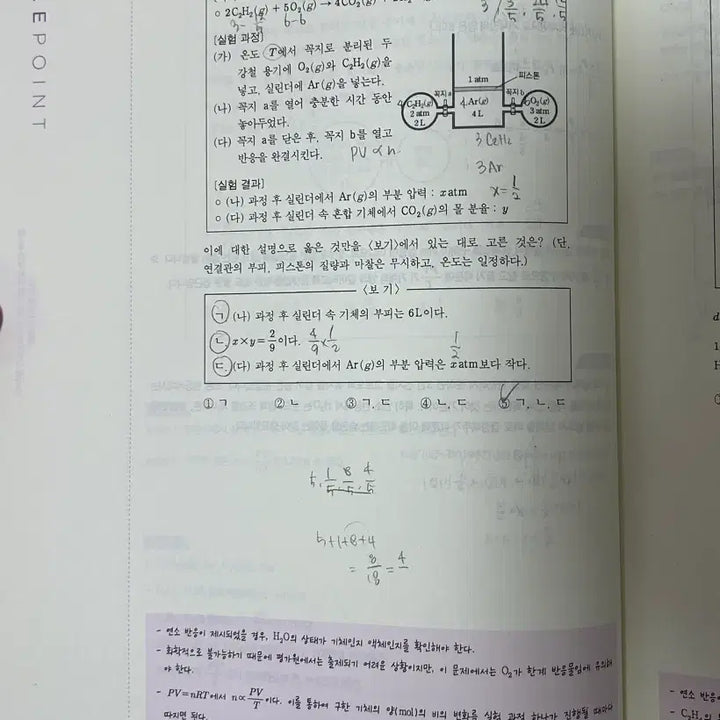 EPOINT
○ 2C₂H₂(g) + 5O₂(g) → 4CO₂(g) +
[실험 과정]
(가) 온도 T에서 꼭지로 분리된 두
강철 용기에 O₂(g)와 C₂H₂(g)을
넣고, 실린더에 Ar(g)을 넣는다.
(나) 꼭지 a를 열어 충분한 시간 동안
놓아두었다.
(다) 꼭지 a를 닫은 후, 꼭지 b를 열고
반응을 완결시킨다. PV∝n
1 atm
피스톤
꼭지 a
꼭지 b
C₂H₂(g)
2 atm
2 L
Ar(g)
4 L
O₂(g)
3 atm
2 L
3 C₂H₂
3 Ar
[실험 결과]
○ (나) 과정 후 실린더에서 Ar(g)의 부분 압력 : x atm x=1/2
○ (다) 과정 후 실린더 속 혼합 기체에서 CO₂(g)의 몰 분율 : y
이에 대한 설명으로 옳은 것만을 〈보기〉에서 있는 대로 고른 것은? (단,
연결관의 부피, 피스톤의 질량과 마찰은 무시하고, 온도는 일정하다.)
〈보 기〉
ㄱ. (나) 과정 후 실린더 속 기체의 부피는 6 L이다.
ㄴ. x×y=2/9이다. 4/9×1/2
1/2
ㄷ. (다) 과정 후 실린더에서 Ar(g)의 부분 압력은 x atm보다 작다.
① ㄱ ② ㄴ ③ ㄱ, ㄷ ④ ㄴ, ㄷ ⑤ ㄱ, ㄴ, ㄷ
5+1+8+4
= 8/18 = 4/
- 연소 반응이 제시되었을 경우, H₂O의 상태가 기체인지 액체인지를 확인해야 한다.
- 화학적으로 불가능하기 때문에 평가원에서는 출제되기 어려운 상황이지만, 이 문제에서는 O₂가 한계 반응물임에 유의해
야 한다.
- PV=nRT에서 n∝PV/T이다. 이를 통하여 구한 기체의 양(mol)의 비의 변화를 실험 과정 하나가 진행될 때마다
따지면 된다.
- 연소 반응
- C₂H₂